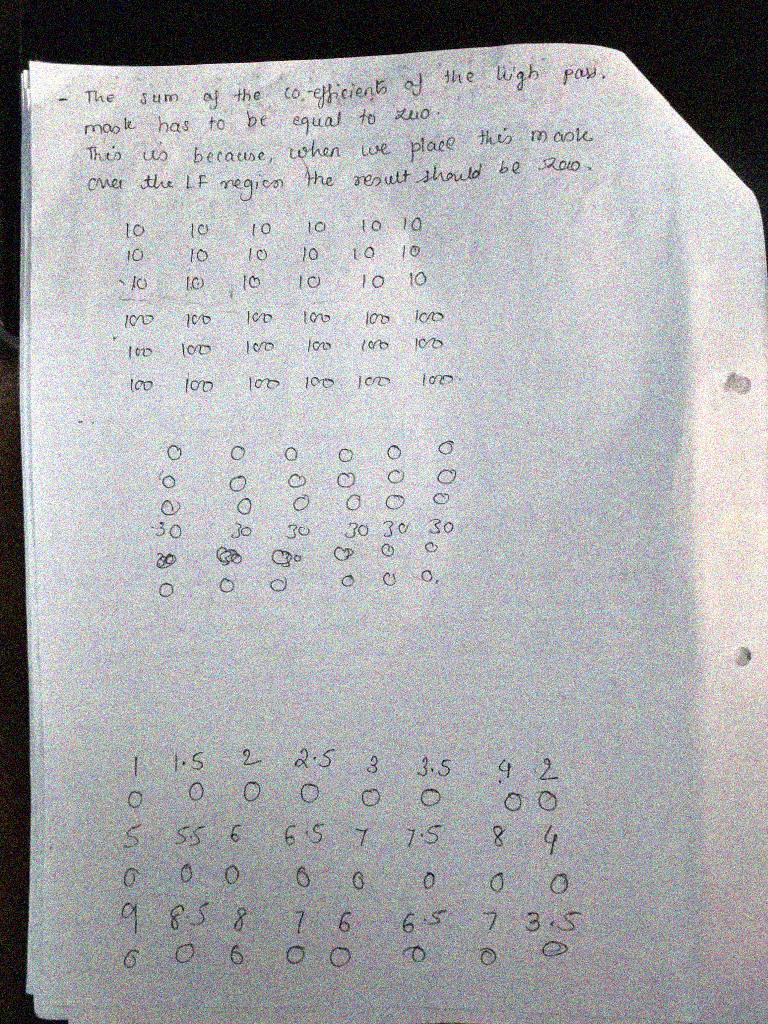 - The sum of the co-efficients of the high pass.
mask has to be equal to zero.
This is because, when we place this mask
over the LF region the result should be zero.
10 10 10 10 10 10
10 10 10 10 10 10
10 10 10 10 10 10
100 100 100 100 100 100
100 100 100 100 100 100
100 100 100 100 100 100
0 0 0 0 0 0
0 0 0 0 0 0
0 0 0 0 0 0
30 30 30 30 30 30
0 0 0
0 0 0 0 0 0.
1 1.5 2 2.5 3 3.5 4 2
0 0 0 0 0 0 0 0
5 55 6 6.5 7 7.5 8 4
0 0 0 0 0 0 0 0
9 8.5 8 7 6 6.5 7 3.5
0 0 0 0 0 0 0 0